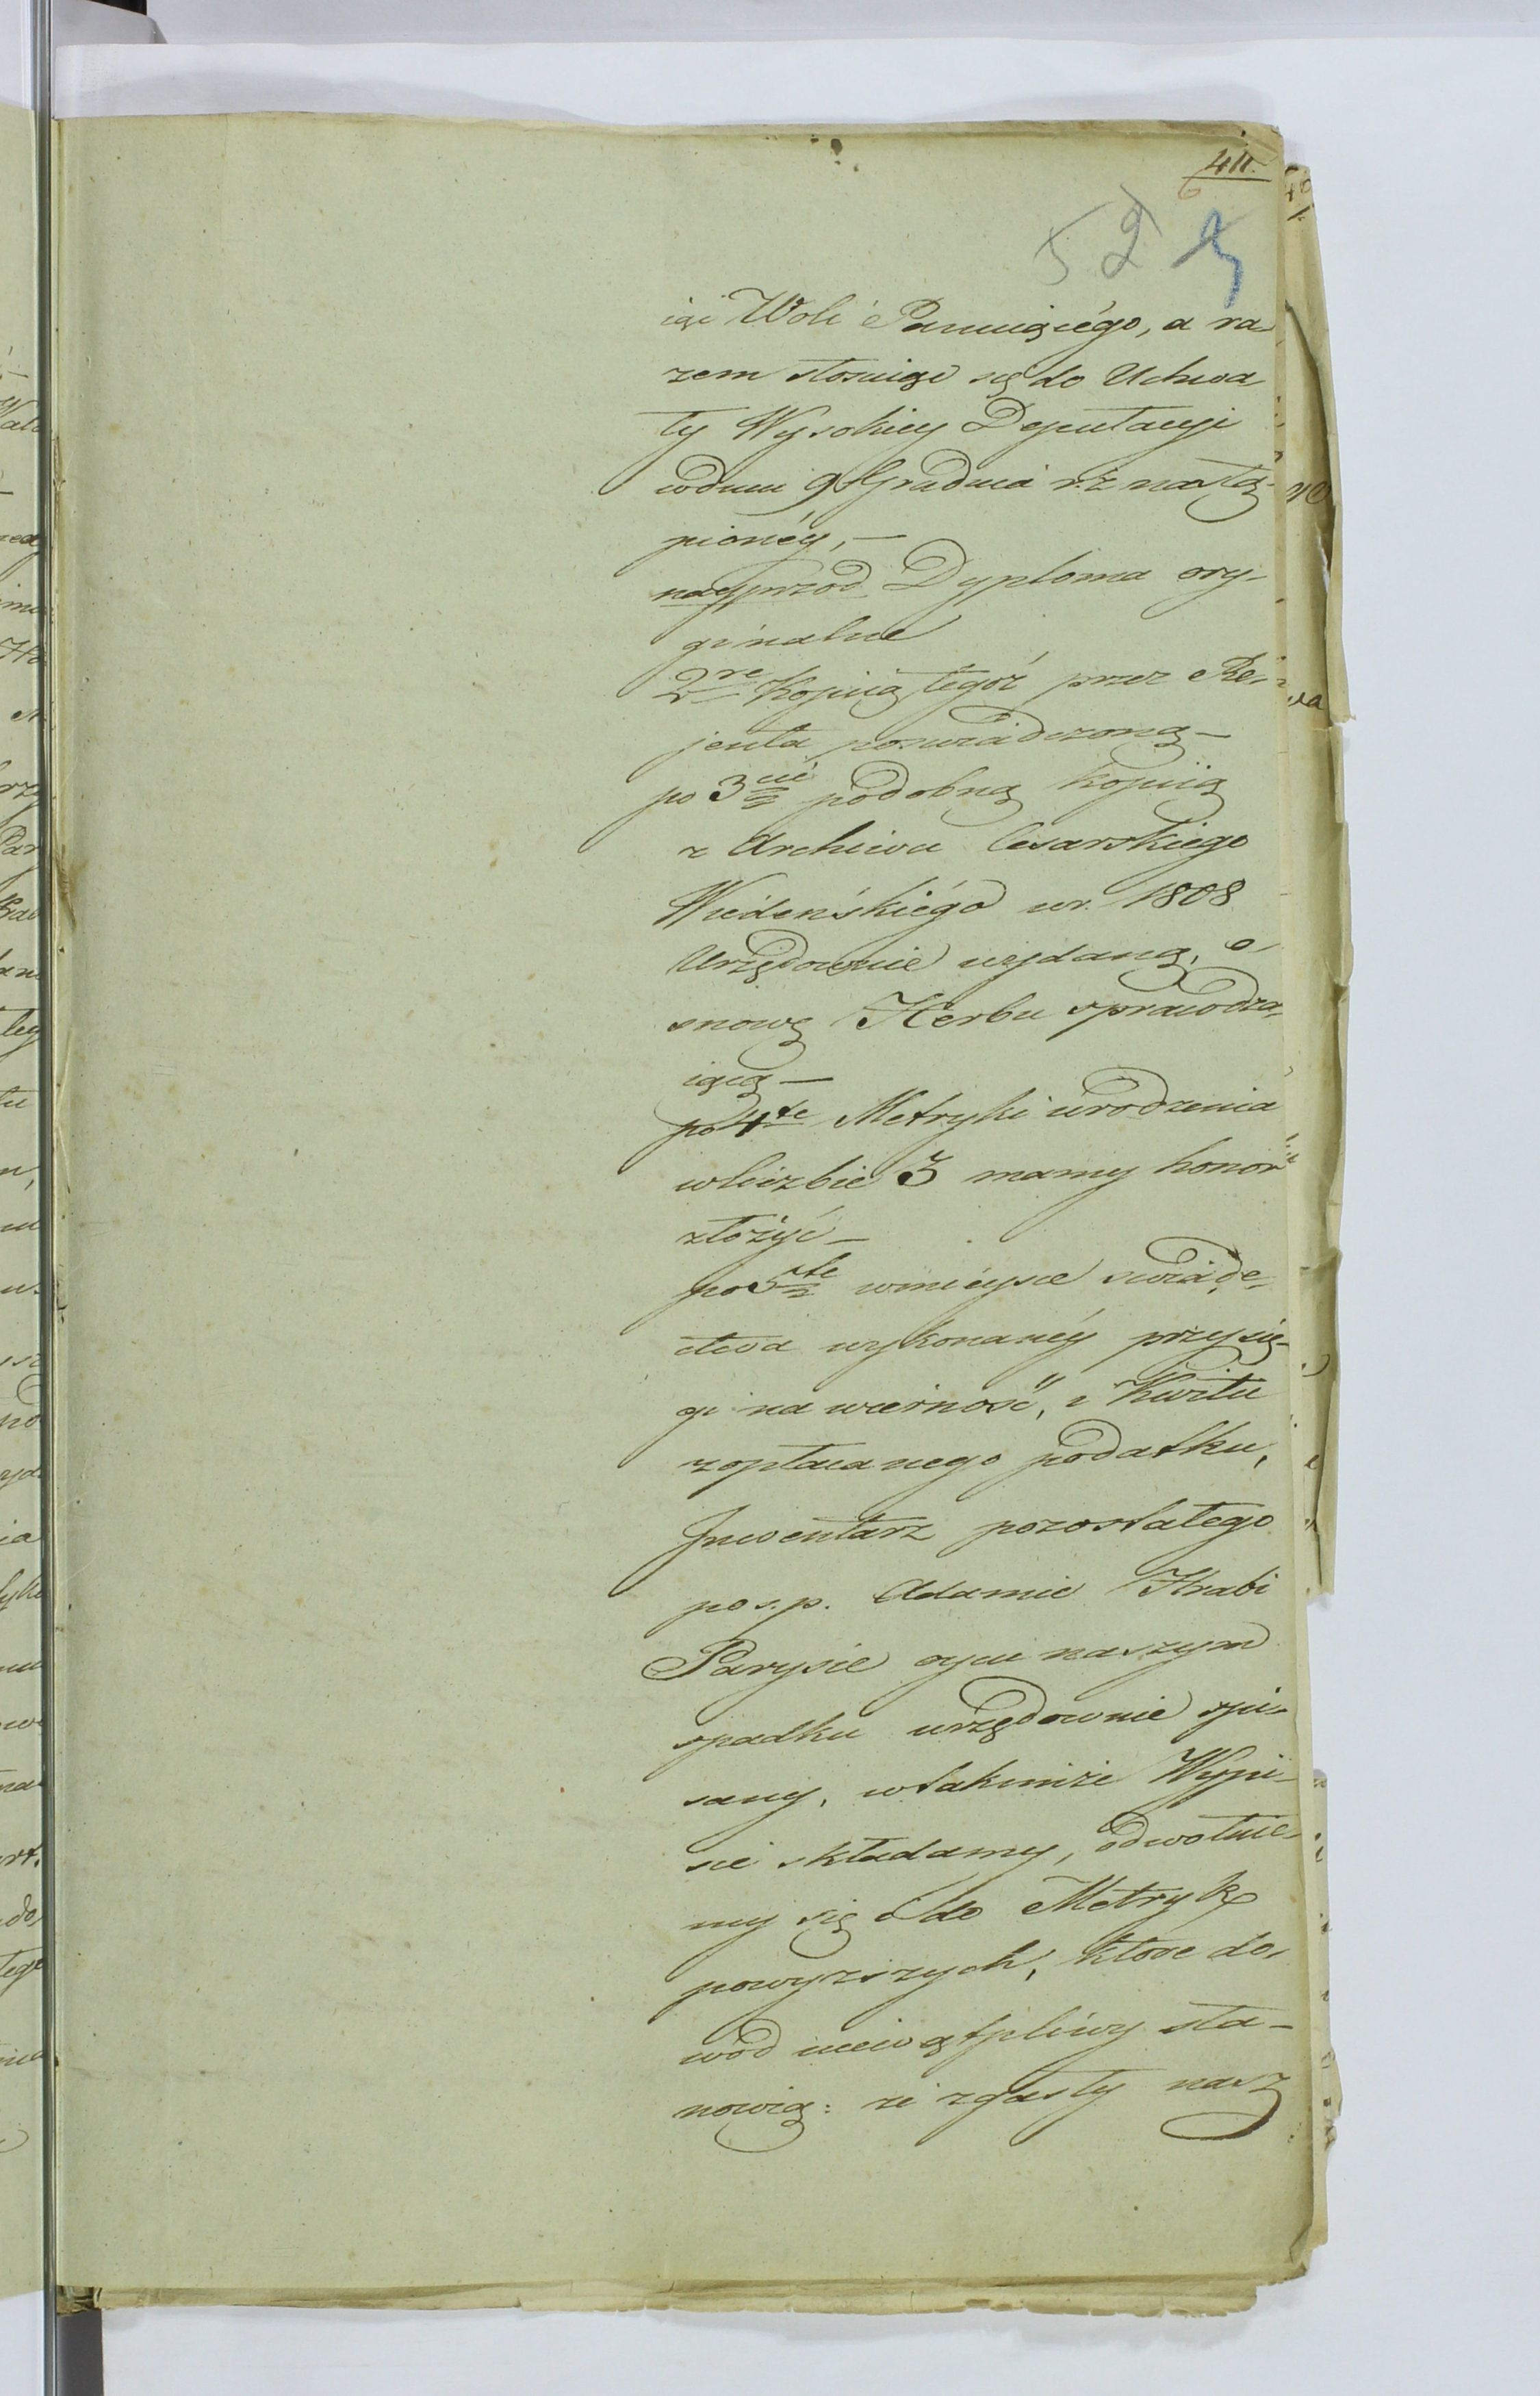 411.
6
52
iąc Woli Panuiącego, a ra-
zem stosuiąc się do Uchwa
ły Wysokiey Deputacyi
w dniu 9 Grudnia r. z. nastą-
pionéy, —
nayprzód Dyploma ory-
ginalne
2re Kopiią tegoż przez Re-
jenta poswiadczoną —
po 3cie podobną kopiią
z Archiwu Cesarskiego
Wiedeńskiégo w r. 1808
Urzędownie wydaną, o-
snowę Herbu sprawdza-
iącą —
po 4te Metryki urodzenia
w liczbie 3 mamy honor
złożyć —
po 5te w mieysce swiade-
ctwa wykonanéy przysię-
gi na wierność, i Kwitu
z opłacanego podatku,
Inwentarz pozostałego
po s. p. Adamie Hrabi
Parysie oycu naszym
spadku urzędownie spi-
sany, w takimże Wypi-
sie składamy, odwołuie-
my się i do Metryk
powyższych, które do-
wód niewątpliwy sta-
nowią: że zgasły nasz